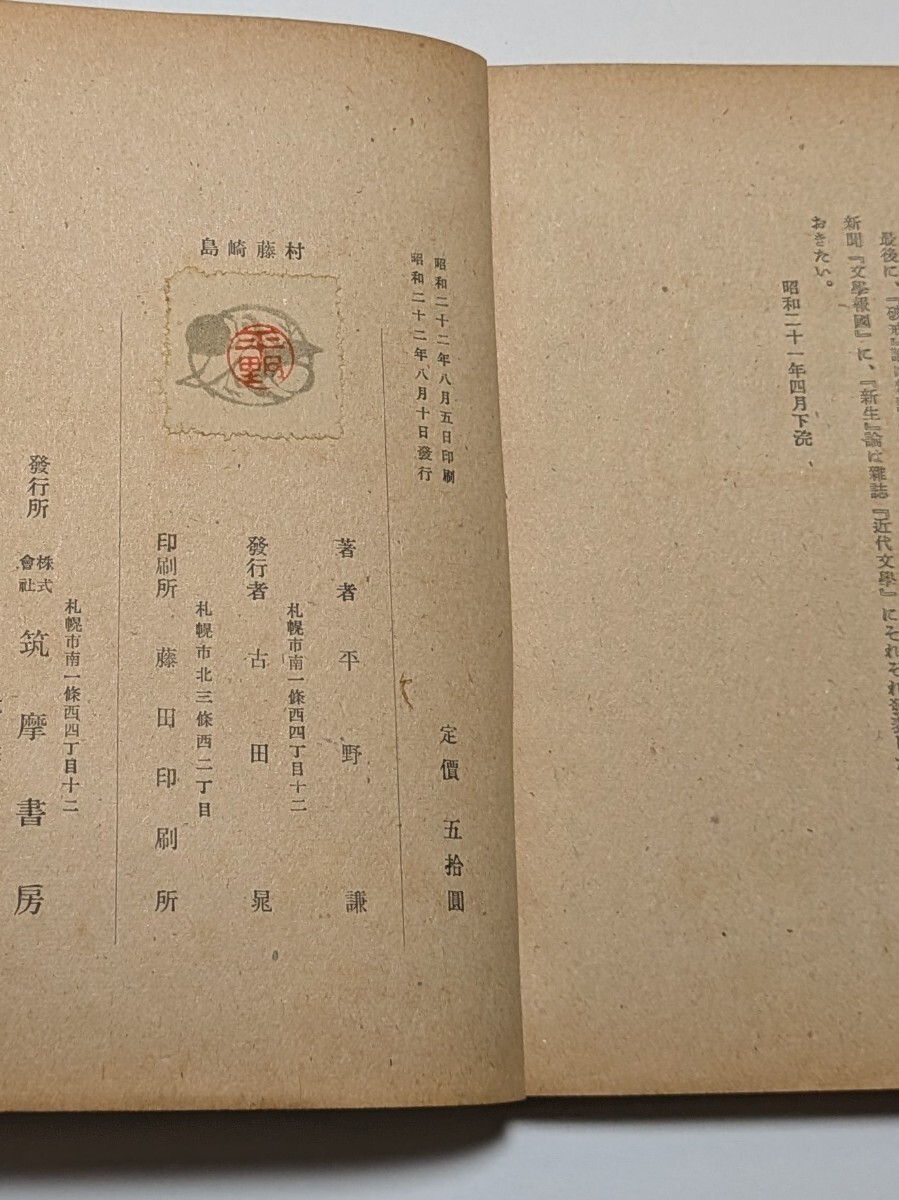 最後に、『破戒』論は
新聞『文學報國』に、『新生』論は雜誌『近代文學』にそれぞれ發表した
おきたい。
昭和二十一年四月下浣
島崎藤村
平野
昭和二十二年八月五日印刷
昭和二十二年八月十日發行
定價 五拾圓
著者 平野謙
札幌市南一條西四丁目十二
發行者 古田晁
札幌市北三條西二丁目
印刷所 藤田印刷所
札幌市南一條西四丁目十二
發行所 株式會社 筑摩書房